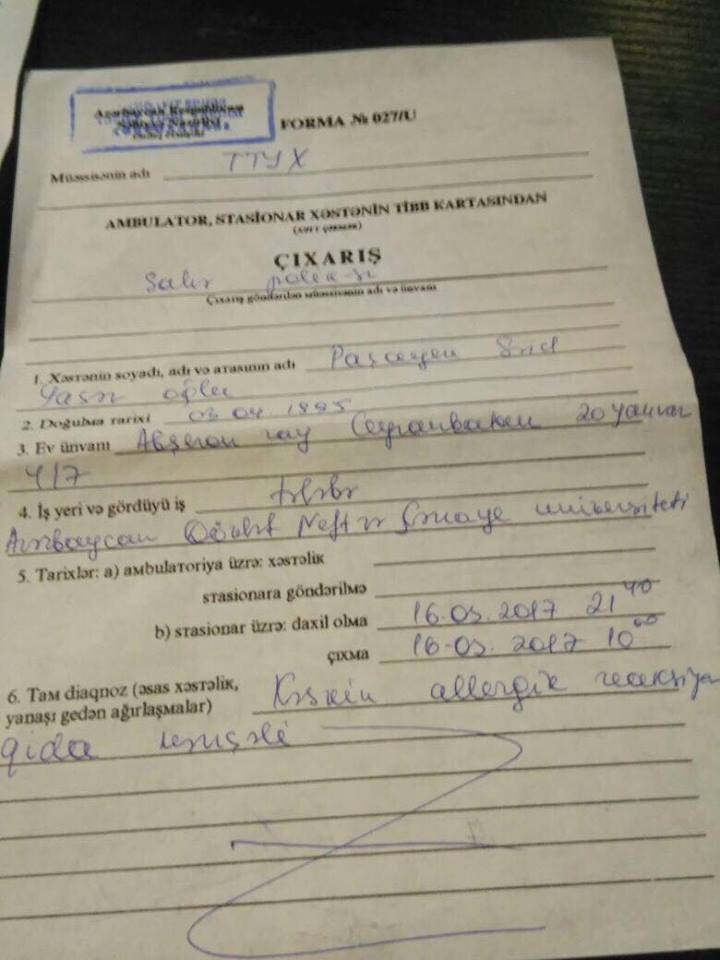 Azərbaycan Respublikası
Səhiyyə Nazirliyi
FORMA № 027/U
Müəssisənin adı TTYX
AMBULATOR, STASİONAR XƏSTƏNİN TİBB KARTASINDAN
ÇIXARIŞ
Çıxarış göndərilən müəssisənin adı və ünvanı
1. Xəstənin soyadı, adı və atasının adı
oğlu
2. Doğulma tarixi 03.04.1995
3. Ev ünvanı Abşeron ray Ceyranbatan 20 yanvar
4/7
4. İş yeri və gördüyü iş tələbə
Azərbaycan Dövlət Neft və Sənaye universiteti
5. Tarixlər: a) ambulatoriya üzrə: xəstəlik
stasionara göndərilmə
b) stasionar üzrə: daxil olma 16.05.2017 21 40
çıxma 16.05.2017 10 00
6. Tam diaqnoz (əsas xəstəlik, Kəskin allergik reaksiya
yanaşı gedən ağırlaşmalar)
qida mənşəli